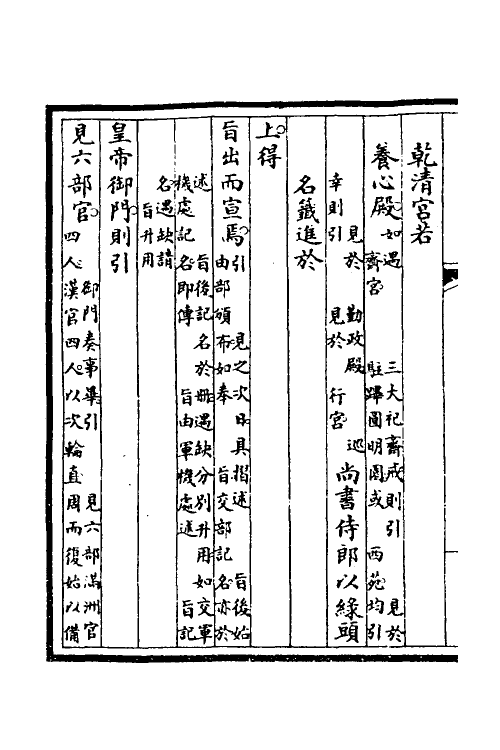 乾清宮若
養心殿如遇 三大祀齋戒則引 見於
齋宮 駐蹕圓明園或 西苑均引
見於 勤政殿 巡
幸則引 見於 行宮尚書侍郎以綠頭
名籤進於
上得
旨出而宣焉引 見之次日具摺述 旨後始
由部頒布如奉 旨交部記名亦於
述 旨後記 名於冊遇缺分別升用如交軍
機處記 名即傳 旨由軍機處述 旨記
名遇缺請
旨升用
皇帝御門則引
見六部官御門奏事畢引 見六部滿洲官
四人漢官四人以次輪直周而復始以備